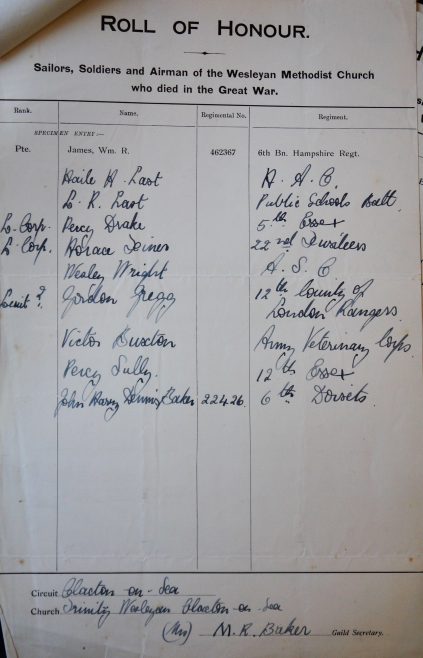 ROLL OF HONOUR.
Sailors, Soldiers and Airman of the Wesleyan Methodist Church
who died in the Great War.
Rank. Name. Regimental No. Regiment.
SPECIMEN ENTRY:—
Pte. James, Wm. R. 462367 6th Bn. Hampshire Regt.
H. Last A. A. C.
L. R. Last Public Schools Batt
L. Corp. Percy Drake 5th Essex
L. Corp. Horace Joiner 22nd Fusiliers
Wesley Wright A. S. C
Lieut ? Gordon Gregg 12th County of
London Rangers
Victor Buxton Army Veterinary Corps.
Percy Sully. 12th Essex
John Harry Dennis Baker 22426. 6th Dorsets
Circuit Clacton-on-Sea
Church Trinity Wesleyan Clacton-on-Sea
(Mrs) M. R. Baker Guild Secretary.